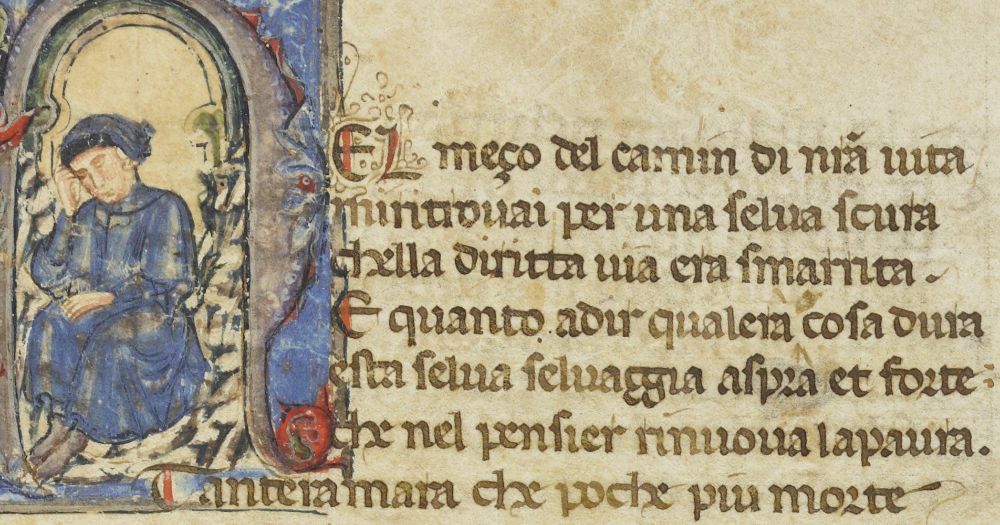 NEL meço del camin di nr̃a uita
mi ritrouai per una selua scura
chella diritta uia era smarrita.
E quanto adir qualera cosa dura
esta selua seluaggia aspra et forte
che nel pensier rinuoua lapaura.
Tantera mara che poche piu morte